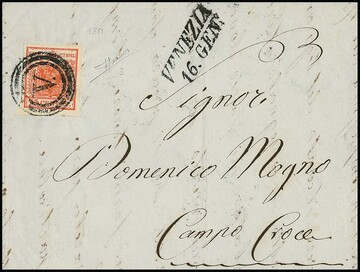 VENEZIA
16. GEN:
V
Signori
Domenico Magno
Campo Croce